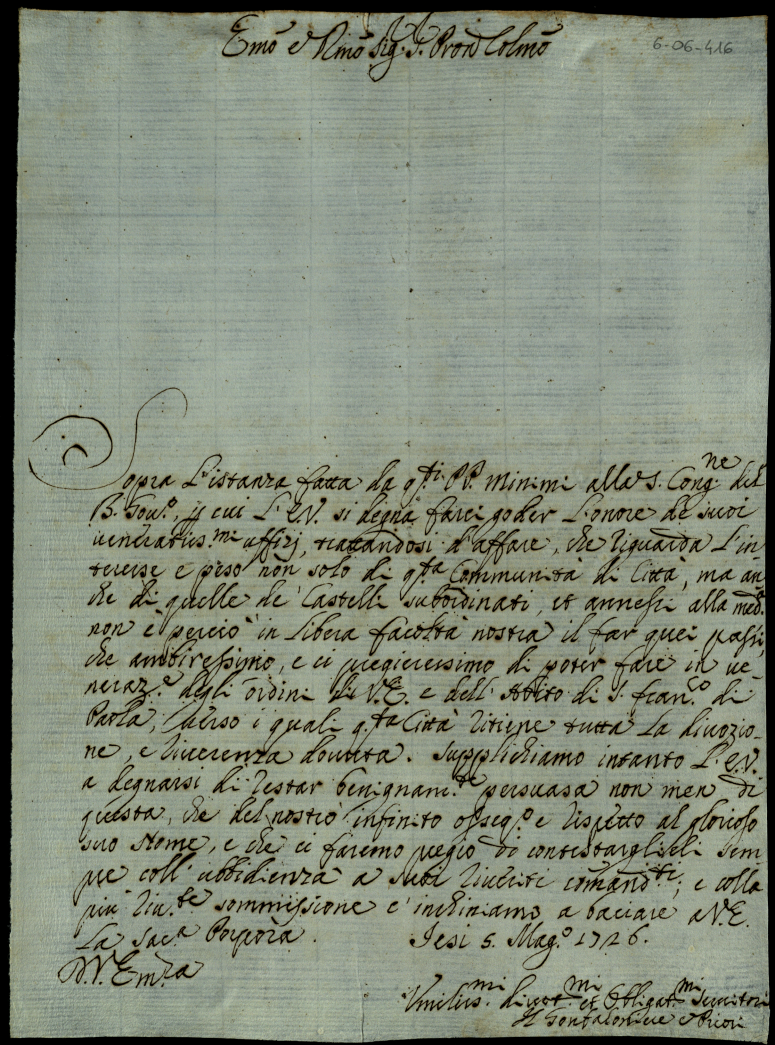 Emo e Rmo Sig. Pron Colmo
6-06-416
Sopra L'istanza fatta da q.ti PP. Minimi alla S. Cong.ne del
B. Gov.o, p cui L'E.V. si degna farci goder L'onore de suoi
veneratiss.mi uffizj, trattandosi d'affare, che riguarda L'in
teresse e peso non solo di q.ta Communità di Città, ma an
che di quelle de Castelli subordinati, et annessi alla med.
non è perciò in libera facoltà nostra il far quei passi,
che ambiressimo, e ci pregieressimo di poter fare in ve
neraz.e degli ordini di V.E. e dell' Abito di S. Fran.co di
Paola, verso i quali q.ta Città ritiene tutta La divozio-
ne, e riverenza dovuta. Supplichiamo intanto L'E.V.
a degnarsi di restar benignam.te persuasa non men di
questa, che del nostro infinito osseq.o e rispetto al glorioso
suo Nome, e che ci faremo pregio di contestarglieli sem
pre coll' ubbidienza a suoi riveriti comand.ti; e colla
più riv.te sommissione c'inchiniamo a baciare a V.E.
La Sac.a Porpora. Jesi 5. Mag.o 1726.
D.V. Em.za
Umiliss.mi divot.mi et Obligat.mi Servitori
Il Gonfaloniere e Priori